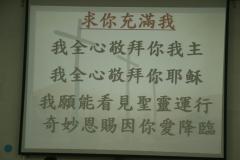 求你充滿我
我全心敬拜你我主
我全心敬拜你耶穌
我願能看見聖靈運行
奇妙恩賜因你愛降臨